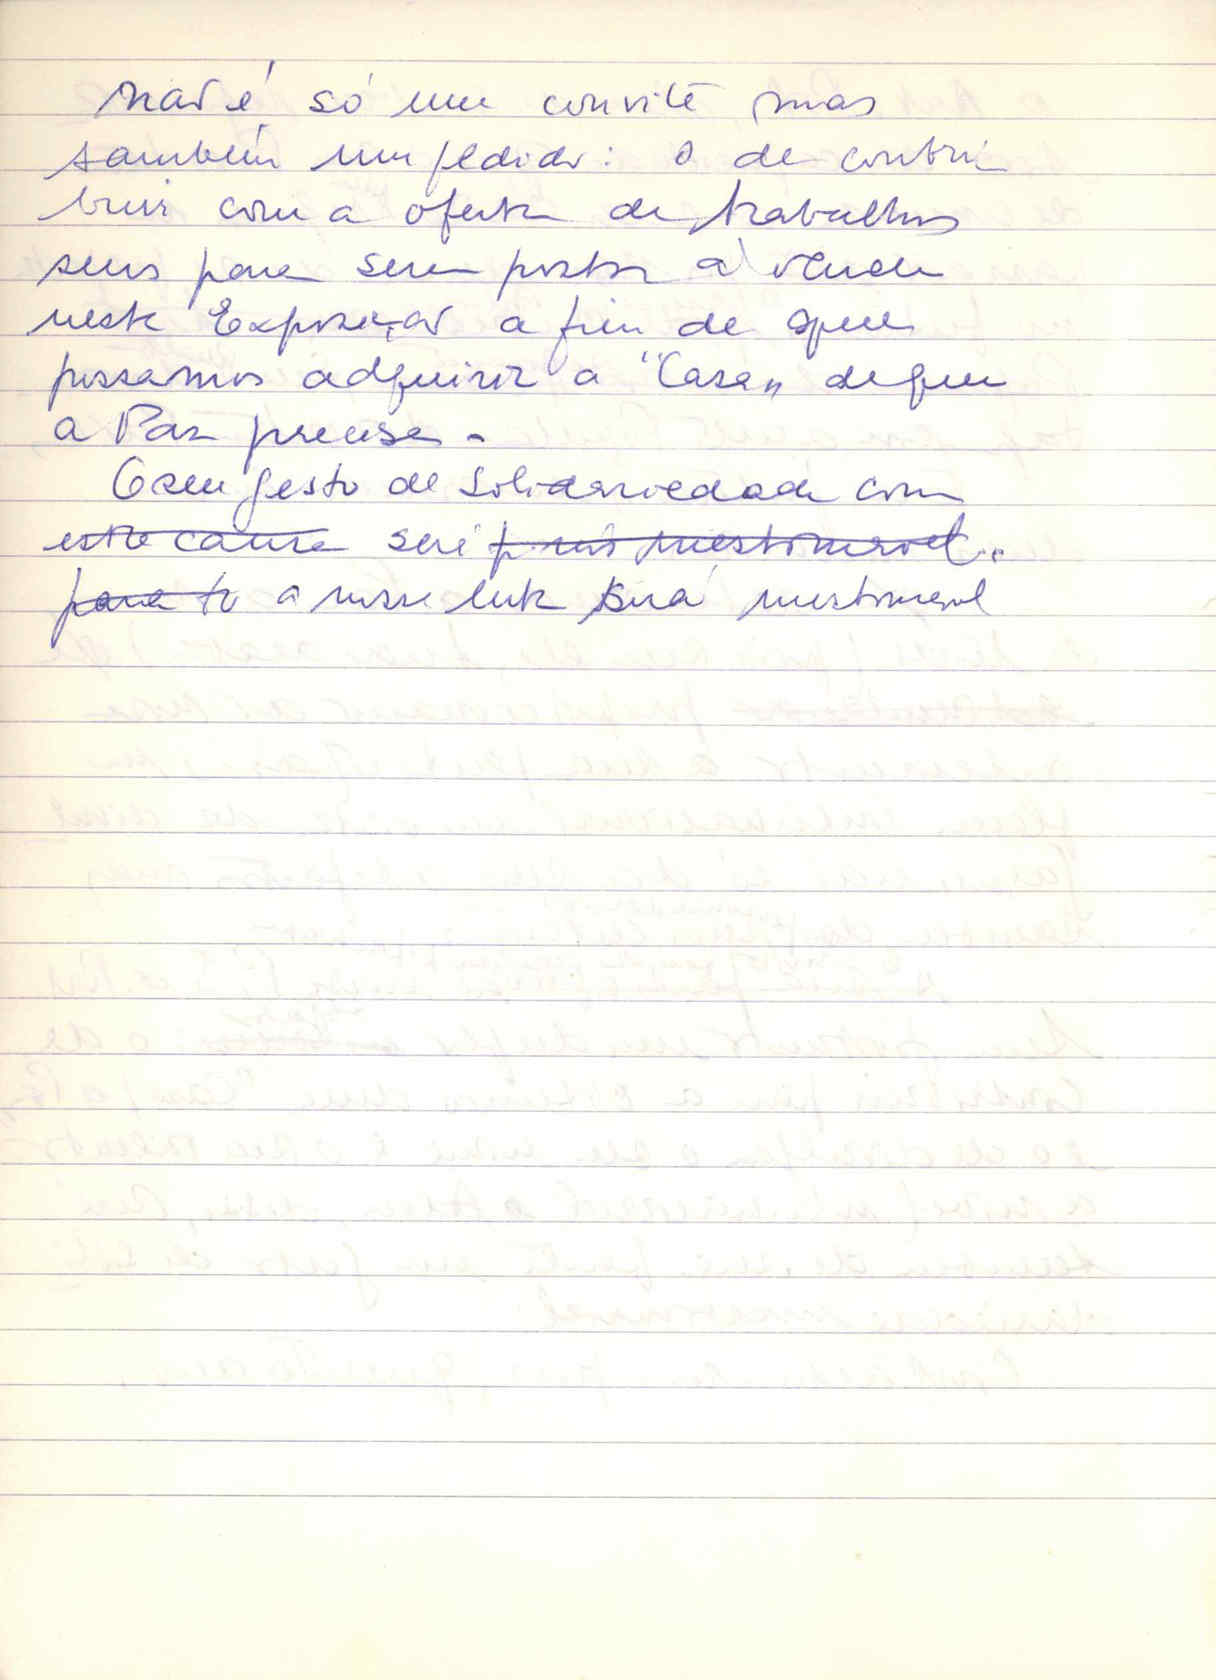 Não é só um convite, mas
também um pedido: o de contri
buir com a oferta de trabalhos
seus para serem postos à venda
nesta Exposição a fim de que
possamos adquirir a "Casa" de que
a Paz precisa.
O seu gesto de solidariedade com
esta causa será p inestimável..
para to a nossa luta será inestimável